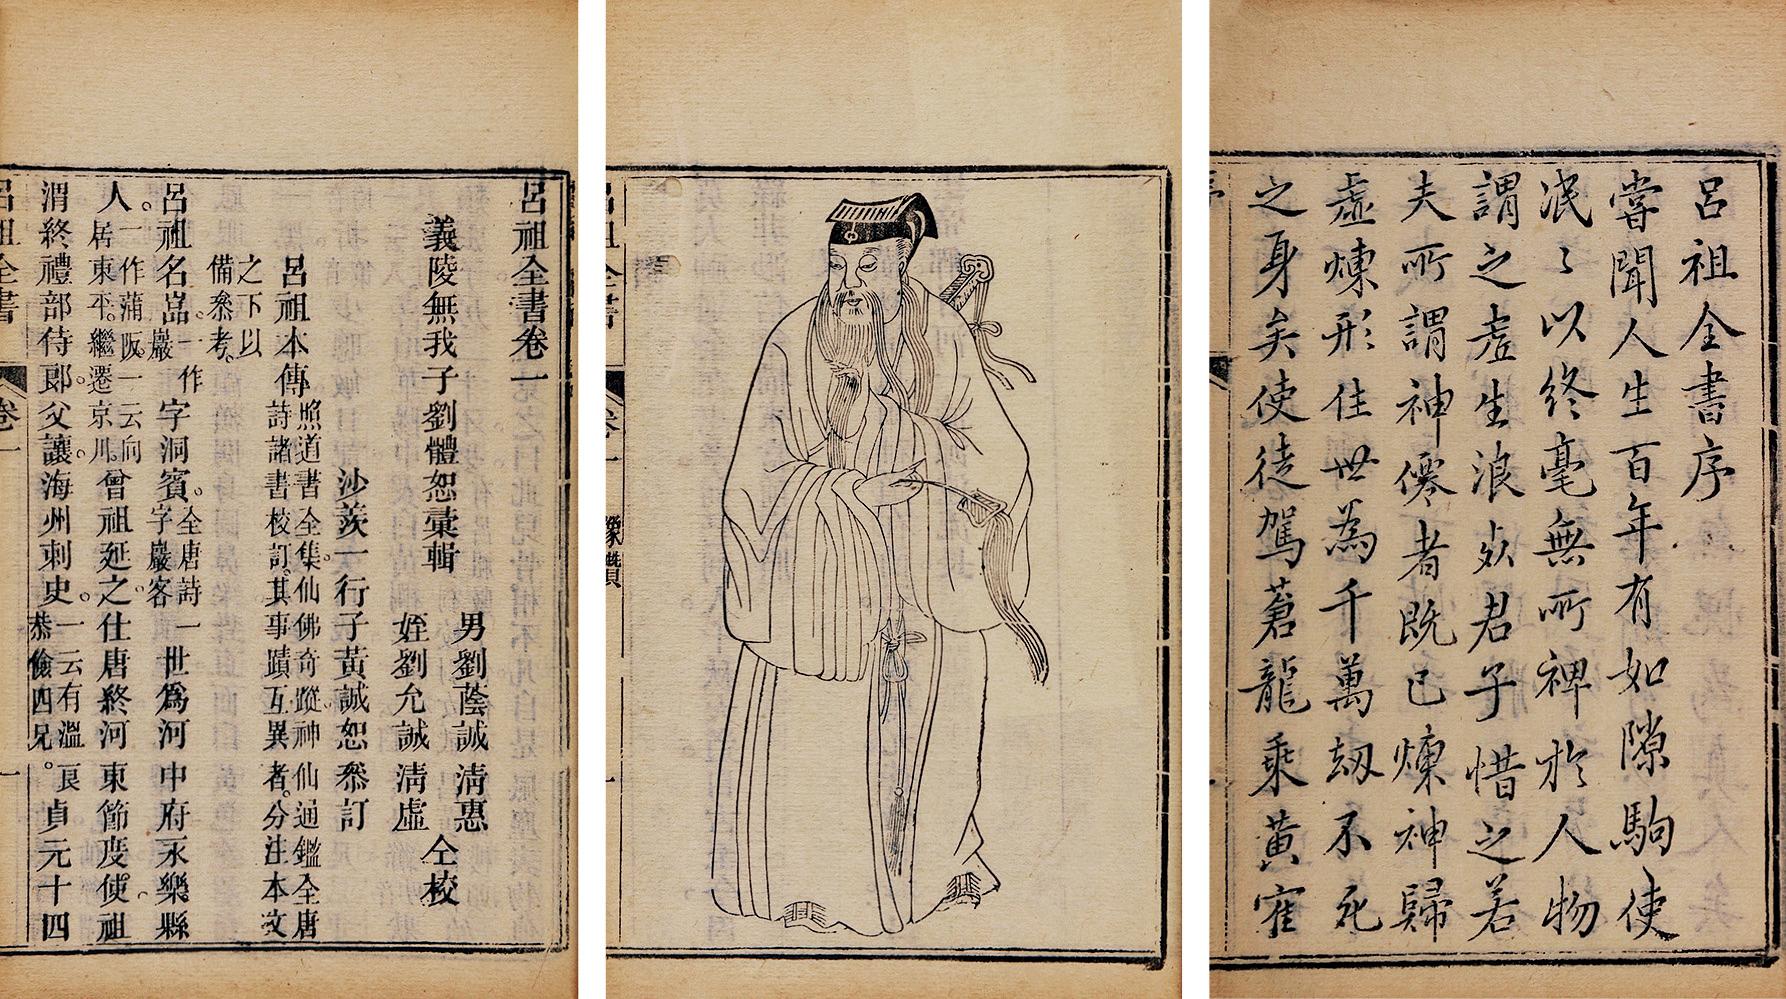 呂祖全書序
嘗聞人生百年有如隙駒使
泯泯以終毫無所裨於人物
謂之虛生浪死君子惜之若
夫所謂神僊者既已煉神歸
虛煉形住世為千萬劫不死
之身矣使徒駕蒼龍乘黃寉
呂祖全書
卷一
像讚
呂祖全書卷一
男劉蔭誠清惠
義陵無我子劉體恕彙輯
仝校
姪劉允誠清虛
沙羨一行子黃誠恕叅訂
呂祖本傳
照道書全集。仙佛奇蹤。神仙通鑑全唐
詩諸書校訂。其事蹟互異者。分注本文
之下以
備叅考。
呂祖名嵓。一作巖字洞賓。全唐詩一字巖客世為河中府永樂縣
人。一作蒲阪。一云向居東平。繼遷京川。曾祖延之。仕唐終河東節度使。祖
渭終禮部侍郎。父讓。海州刺史。一云有溫良恭儉四兄。貞元十四
呂祖全書
卷一
一